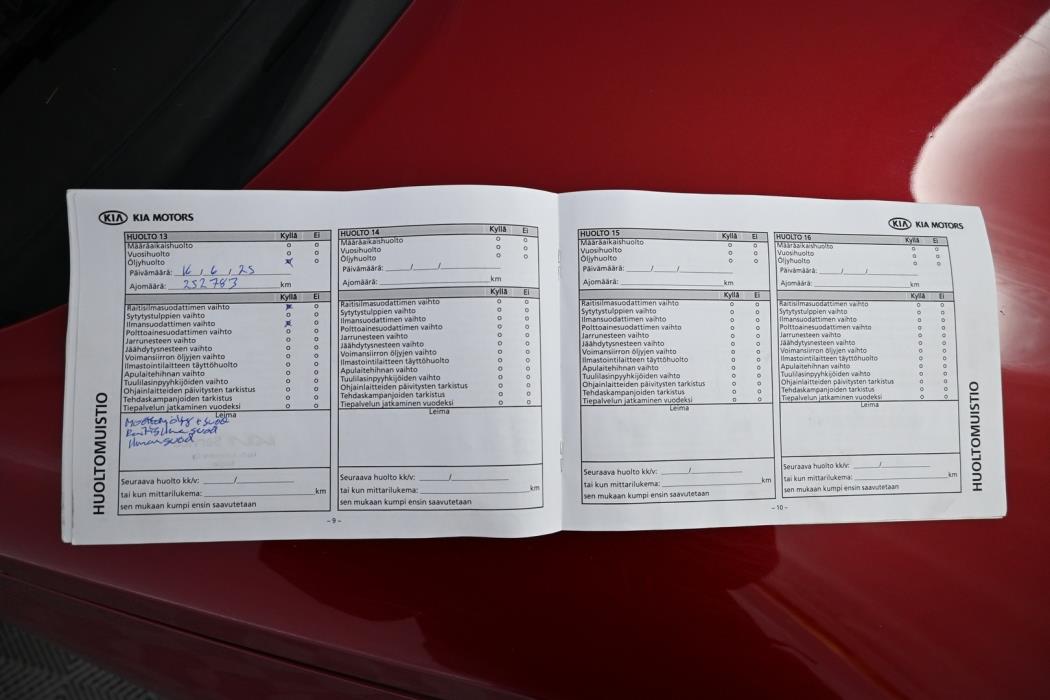 KIA KIA MOTORS
HUOLTOMUISTIO
HUOLTO 13 Kyllä Ei
Määräaikaishuolto o o
Vuosihuolto o o
Öljyhuolto x o
Päivämäärä: 16 / 6 / 25
Ajomäärä: 252783 km
Kyllä Ei
Raitisilmasuodattimen vaihto x o
Sytytystulppien vaihto o o
Ilmansuodattimen vaihto x o
Polttoainesuodattimen vaihto o o
Jarrunesteen vaihto o o
Jäähdytysnesteen vaihto o o
Voimansiirron öljyjen vaihto o o
Ilmastointilaitteen täyttöhuolto o o
Apulaitehihnan vaihto o o
Tuulilasinpyyhkijöiden vaihto o o
Ohjainlaitteiden päivitysten tarkistus o o
Tehdaskampanjoiden tarkistus o o
Tiepalvelun jatkaminen vuodeksi o o
Leima
Seuraava huolto kk/v: ______/______
tai kun mittarilukema: ______ km
sen mukaan kumpi ensin saavutetaan
HUOLTO 14 Kyllä Ei
Määräaikaishuolto o o
Vuosihuolto o o
Öljyhuolto o o
Päivämäärä: ____/____/____
Ajomäärä: ______ km
Kyllä Ei
Raitisilmasuodattimen vaihto o o
Sytytystulppien vaihto o o
Ilmansuodattimen vaihto o o
Polttoainesuodattimen vaihto o o
Jarrunesteen vaihto o o
Jäähdytysnesteen vaihto o o
Voimansiirron öljyjen vaihto o o
Ilmastointilaitteen täyttöhuolto o o
Apulaitehihnan vaihto o o
Tuulilasinpyyhkijöiden vaihto o o
Ohjainlaitteiden päivitysten tarkistus o o
Tehdaskampanjoiden tarkistus o o
Tiepalvelun jatkaminen vuodeksi o o
Leima
Seuraava huolto kk/v: ______/______
tai kun mittarilukema: ______ km
sen mukaan kumpi ensin saavutetaan
- 9 -
KIA KIA MOTORS
HUOLTO 15 Kyllä Ei
Määräaikaishuolto o o
Vuosihuolto o o
Öljyhuolto o o
Päivämäärä: ____/____/____
Ajomäärä: ______ km
Kyllä Ei
Raitisilmasuodattimen vaihto o o
Sytytystulppien vaihto o o
Ilmansuodattimen vaihto o o
Polttoainesuodattimen vaihto o o
Jarrunesteen vaihto o o
Jäähdytysnesteen vaihto o o
Voimansiirron öljyjen vaihto o o
Ilmastointilaitteen täyttöhuolto o o
Apulaitehihnan vaihto o o
Tuulilasinpyyhkijöiden vaihto o o
Ohjainlaitteiden päivitysten tarkistus o o
Tehdaskampanjoiden tarkistus o o
Tiepalvelun jatkaminen vuodeksi o o
Leima
Seuraava huolto kk/v: ______/______
tai kun mittarilukema: ______ km
sen mukaan kumpi ensin saavutetaan
HUOLTO 16 Kyllä Ei
Määräaikaishuolto o o
Vuosihuolto o o
Öljyhuolto o o
Päivämäärä: ____/____/____
Ajomäärä: ______ km
Kyllä Ei
Raitisilmasuodattimen vaihto o o
Sytytystulppien vaihto o o
Ilmansuodattimen vaihto o o
Polttoainesuodattimen vaihto o o
Jarrunesteen vaihto o o
Jäähdytysnesteen vaihto o o
Voimansiirron öljyjen vaihto o o
Ilmastointilaitteen täyttöhuolto o o
Apulaitehihnan vaihto o o
Tuulilasinpyyhkijöiden vaihto o o
Ohjainlaitteiden päivitysten tarkistus o o
Tehdaskampanjoiden tarkistus o o
Tiepalvelun jatkaminen vuodeksi o o
Leima
Seuraava huolto kk/v: ______/______
tai kun mittarilukema: ______ km
sen mukaan kumpi ensin saavutetaan
- 10 -
HUOLTOMUISTIO